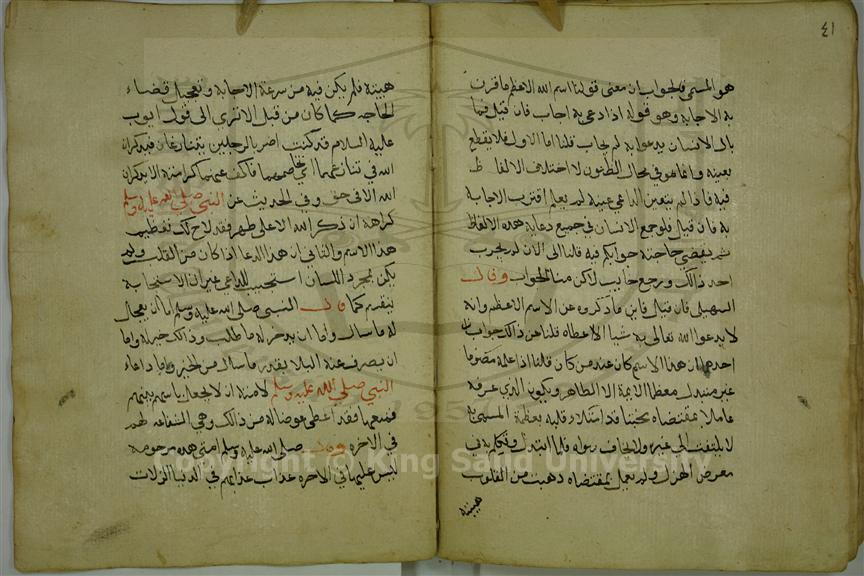 ٤١
هو المسمى فالجواب ان معنى قولنا اسم الله الاعظم ما قرن
به الاجابة وهو قوله اذا دعي به اجاب فان قيل فما
بال الانسان يدعوا به لم يجاب قلنا اما الاول فلا يقطع
بعينه وانما هو في مجال الظنون لاختلاف الالفاظ
فيه فاذا لم يتعين الداعي عينه لم يعلم اقتراب الاجابة
به فان قيل فلو جمع الانسان في جميع دعايه هذه الالفاظ
لم يقضي حاجته جوابكم فيه قلنا الى الان لم يجرب
احد ذالك ورجع خايب لاكن منا الجواب وقال
السهيلي فان قيل فاين ما ذكروه عن الاسم الاعظم وانه
لا يدعوا الله تعالى به شيا الا اعطاه قلنا عن ذالك جوابان
احدهما ان هذا الاسم كان عند من كان قلنا اذا علمه مصوما
غير مبتدل معظما لا يمسه الا الطاهر ويكون الذي عرفه
عاملا بمقتضاه مخبتا قد امتلاء قلبه بعظمة المسمى به
لا يلتفت الى غيره ولا يخاف سواه فلما ابتدل وتكلم به في
معرض الهزل ولم يعمل بمقتضاه ذهبت من القلوب
هيبته
هيبته فلم يكن فيه من سرعة الاجابة وتعجيل قضاء
الحاجه كما كان من قبل الا ترى الى قول ايوب
عليه السلام قد كنت امر بالرجلين يتنازعان فيذكران
الله في تنازعهما اي تخاصمهما فاكفر عنهما كراهة ان يذكران
الله الا في حق وفي الحديث عن النبي صلى الله عليه وسلم
كراهة ان ذكر الله الا على طهر فقد لاح لك تعظيم
هذا الاسم والثاني ان هذا الدعا اذا كان من القلب ولم
يكن بمجرد اللسان استجيب للداعي غير ان الاستجابة
تنقسم كما قال النبي صلى الله عليه وسلم اما ان يعجل
له ما سال واما ان يدخر له ما طلب وذالك خير له واما
ان يصرف عنه البلا بقدر ما سال من الخير واما دعاء
النبي صلى الله عليه وسلم لامته ان لا يجعل باسهم بينهم
فمنعها فقد اعطي عوضا له من ذالك وهي الشفاعه لهم
في الاخره وقال صلى الله عليه وسلم امتي هذه مرحومه
ليس عليها في الاخره عذاب عذابهم في الدنيا الزلات
Copyright © King Saud University